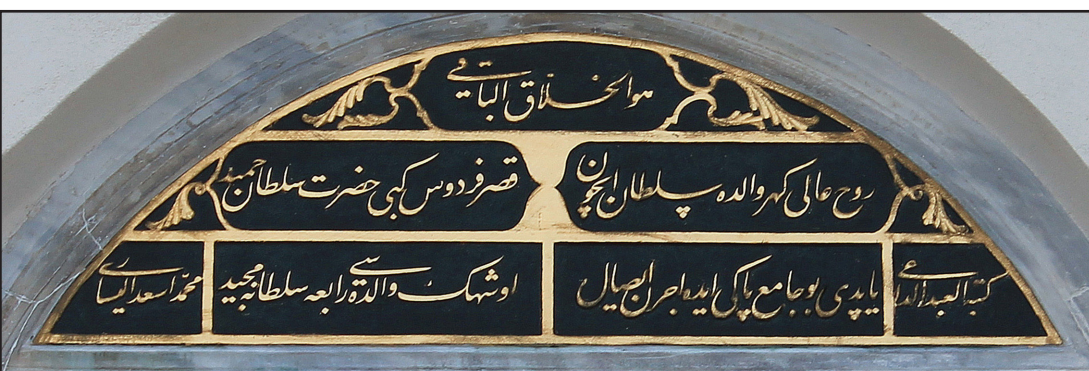 هو الخلاق الباقی
روح عالی کهر والده سلطان ایچون قصر فردوس کبی حضرت سلطان حمید
کتبه العبد الداعی یاپدی بو جامع پاکی ایده اجرن ایصال او شهک والده سی رابعه سلطانه مجید محمد اسعد الیساری